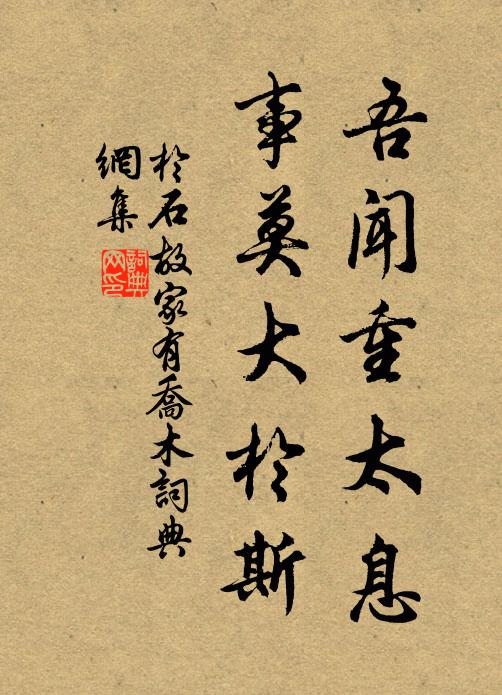 吾聞重太息
事莫大於斯
於石故家有喬木詞典
網集
詞典
网印